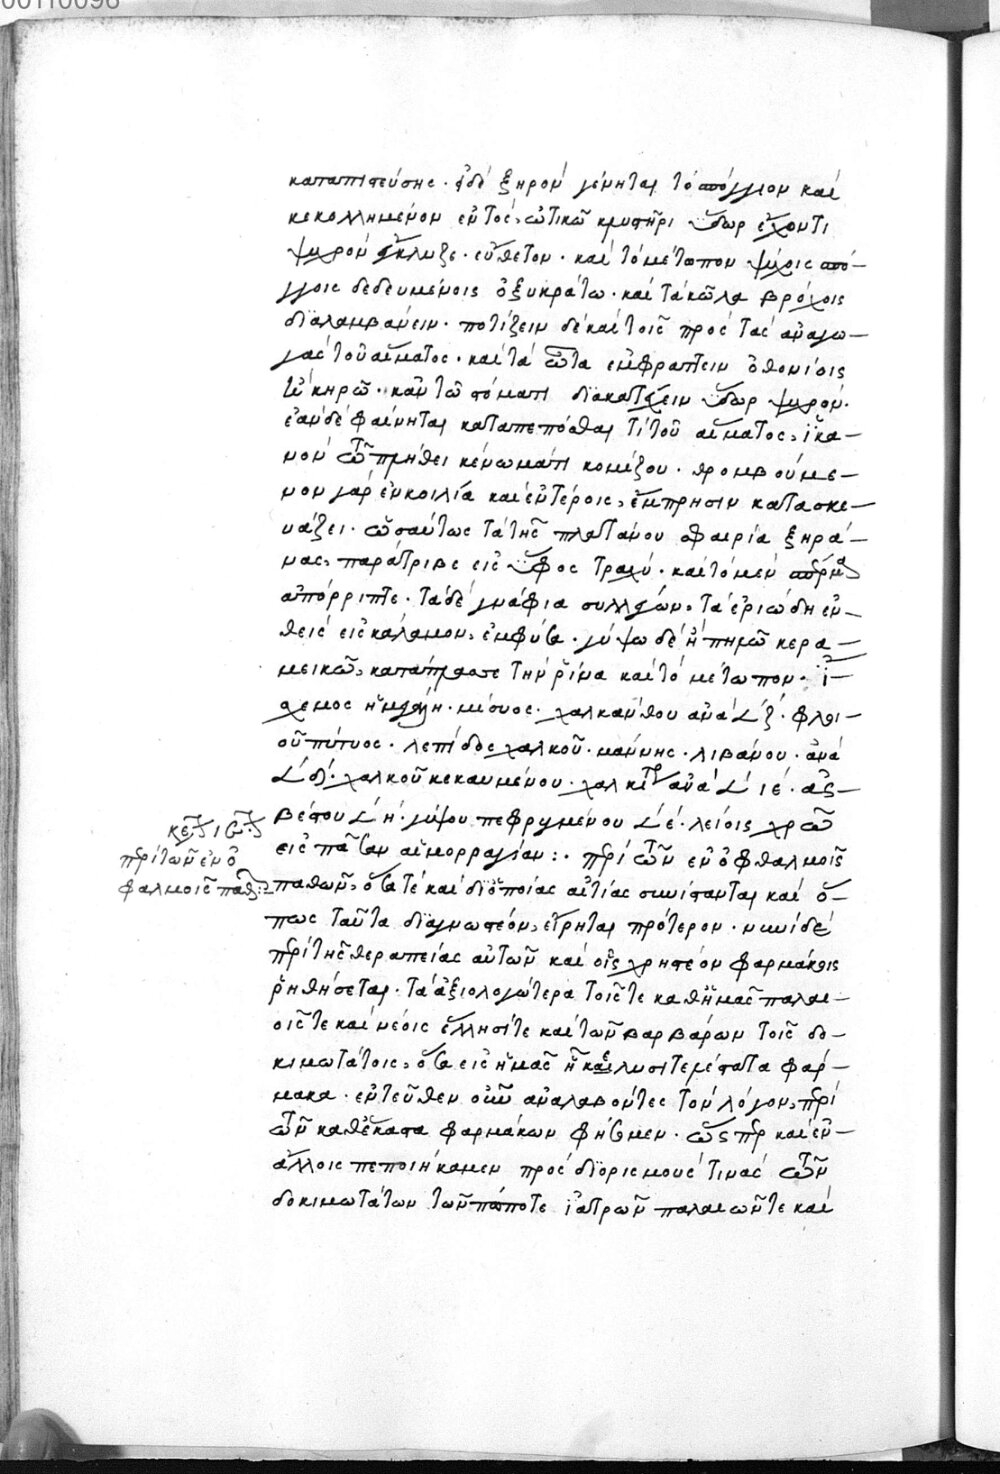 00110098
καταπιστεύσης. εἰ δὲ ξηρὸν γένηται τὸ σπόγγιον καὶ
κεκολλημένον ἐντὸς, ὠτικῶ κλυστῆρι ὕδωρ ἔχοντι
ψυχρὸν ἔκλυζε. εὔθετον. καὶ τὸ μέτωπον ψύχοις σπό-
γγοις δεδευμένοις ὀξυκράτω. καὶ τὰ κῶλα βρόχοις
διαλαμβάνειν. ποτίζειν δὲ καὶ τοῖς πρὸς τὰς ἀναγω-
γὰς τοῦ αἵματος. καὶ τὰ ὦτα ἐμφράττειν ὀθονίοις
κηρῶ. κἂν τῶ στόματι διακατέχειν ὕδωρ ψυχρόν.
ἐὰν δὲ φαίνηται καταπεπόσθαι τὶ τοῦ αἵματος, ἱκα-
νὸν κενώματι κομίζου. θρομβούμε-
νον γὰρ ἐν κοιλία καὶ ἐντέροις, ἔμπρησιν κατασκε-
υάζει. ὡσαύτως τὰ τῆς πλατάνου σφαιρία ξηρά-
νας, παράτριβε εἰς ὕφος τραχύ. καὶ τὸ μὲν
ἀπόρριπτε. τὰ δὲ γνάφια συλλέγων, τὰ ἐριώδη ἐν-
θεὶς εἰς κάλαμον, ἐμφύσα. γύψω δὲ ἢ πηλῶ κερα-
μεικῶ, κατάπλασσε τὴν ῥῖνα καὶ τὸ μέτωπον. ἴ-
σχεμος ἡ μεγάλη. μίσυος. χαλκάνθου ἀνὰ ζ. φλοι-
οῦ πίτυος. λεπίδος χαλκοῦ. μάννης. λιβάνου. ἀνὰ
δ. χαλκοῦ κεκαυμένου. ἀνὰ ιε. ἀσ-
βέστου η. γύψου πεφρυγμένου ε. λείοις χρῶ
εἰς πᾶσαν αἱμορραγίαν:. περὶ τῶν ἐν ὀφθαλμοῖς
παθῶν, ὅσα τὲ καὶ δι' ὁποίας αἰτίας συνίστανται καὶ ὅ-
πως ταῦτα διαγνωστέον, εἴρηται πρότερον. νυνὶ δὲ
περὶ τῆς θεραπείας αὐτῶν καὶ οἷς χρηστέον φαρμάκοις
ῥηθήσεται. τὰ ἀξιολογώτερα τοῖς τε καθ' ἡμᾶς παλαι-
οῖς τε καὶ νέοις ἕλλησί τε καὶ τῶν βαρβάρων τοῖς δο-
κιμωτάτοις, ὅσα εἰς ἡμᾶς ἧκε λυσιτελέστατα φάρ-
μακα. ἐντεῦθεν οὖν ἀναλαβόντες τὸν λόγον, περὶ
τῶν καθέκαστα φαρμάκων φήσωμεν. ὥσπερ καὶ ἐν
ἄλλοις πεποιήκαμεν πρὸς διορισμοὺς τινὰς τῶν
δοκιμωτάτων τῶν πώποτε ἰατρῶν παλαιῶν τε καὶ
περὶ τῶν ἐν ὀ
φθαλμοῖς παθῶν: